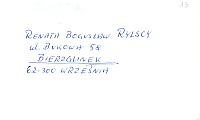 13
RENATA BOGUSŁAW RYLSCY
ul. BUKOWA 58
BIERZGLINEK
62-300 WRZEŚNIA